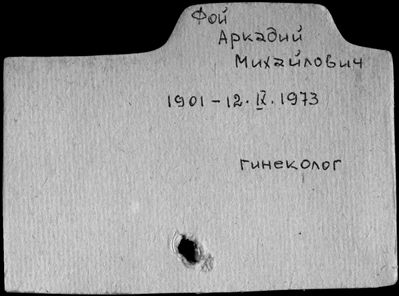 Фой
Аркадий
Михайлович
1901 – 12. IX. 1973
гинеколог